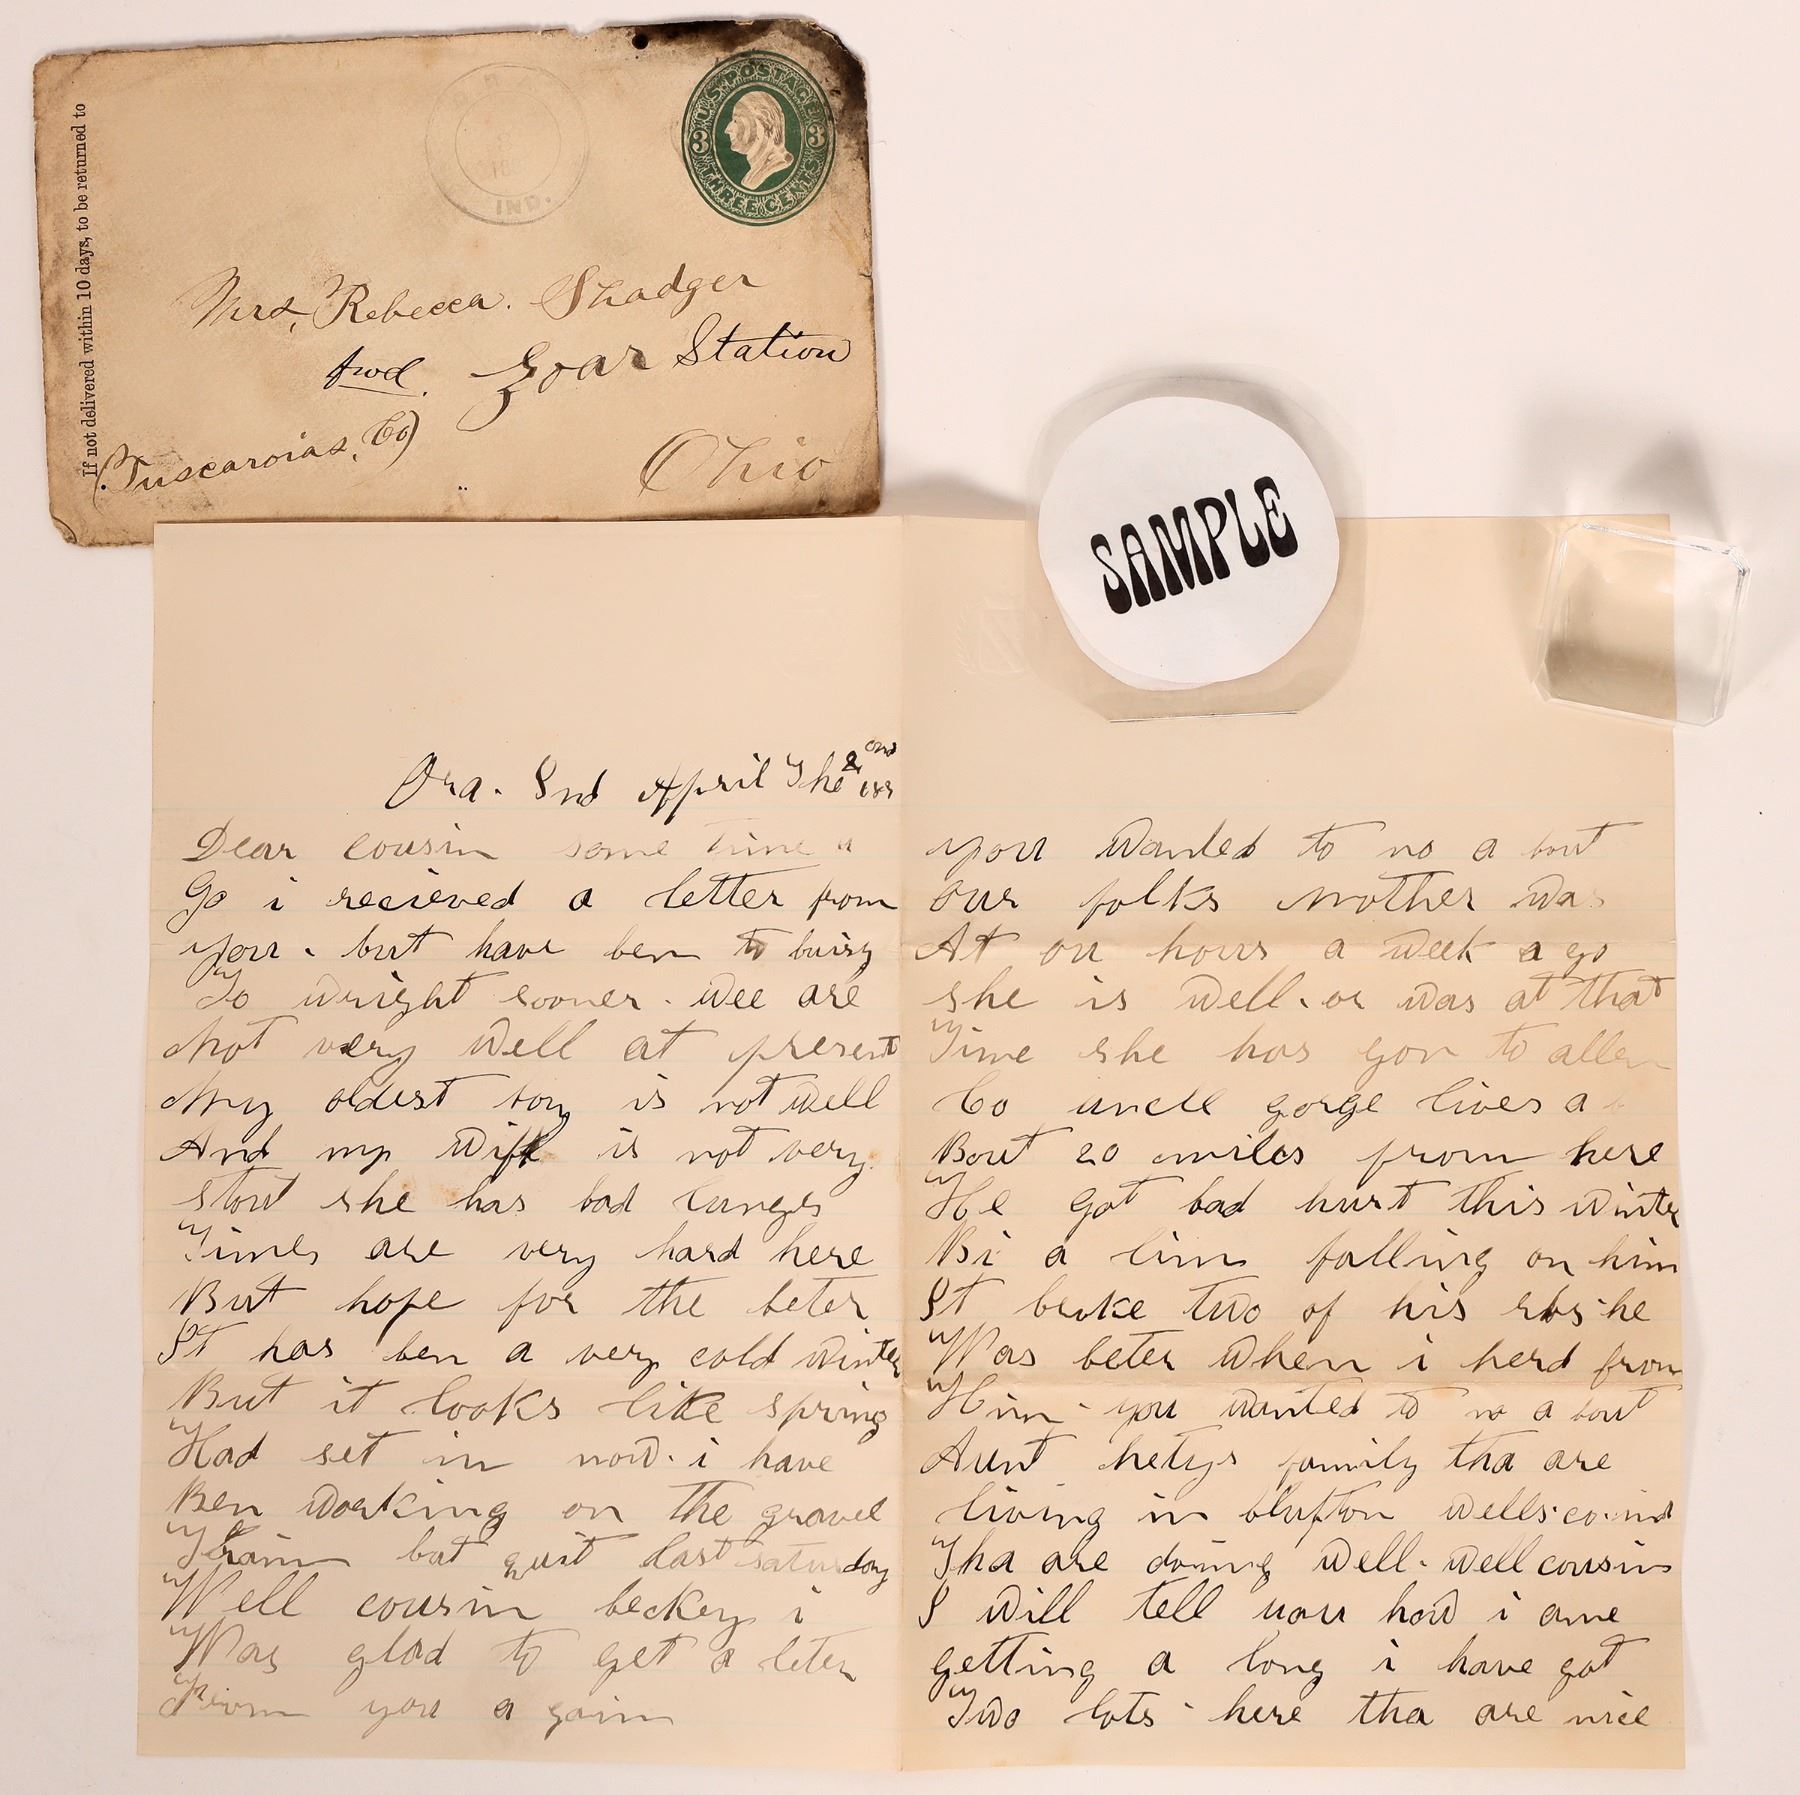 If not delivered within 10 days, to be returned to
IND.
U.S. POSTAGE
3 3
THREE CENTS
Mrs, Rebecca. Shadger
fwd. Zoar Station
(Tuscaroias, Co)
Ohio
SAMPLE
Ora. Ind April The 2ond
Dear cousin some time a
Go i recieved a letter from
you. but have ben to buisy
To wright sooner. wee are
Not very well at present
My oldest boy is not well
And my wife is not very
stout she has bad lunges
Times are very hard here
But hope for the beter
It has ben a very cold winter
But it looks like spring
Had set in now. i have
Ben working on the gravel
Train but quit last saturday
Well cousin beckey i
Was glad to get a leter
From you a gain
you wanted to no a bout
our folks mother was
At ou hous a week a go
she is well. or was at that
Time she has gon to allen
Co uncle gorge lives a
Bout 20 miles from here
He got bad hurt this winter
Bi a lim falling on him
It broke two of his ribs he
Was beter when i herd from
Him - you wanted to no a bout
Aunt hetys family tha are
living in blufton wells. co. ind
Tha are doing well. well cousin
I will tell you how i ame
getting a long i have got
Two lots - here tha are nice